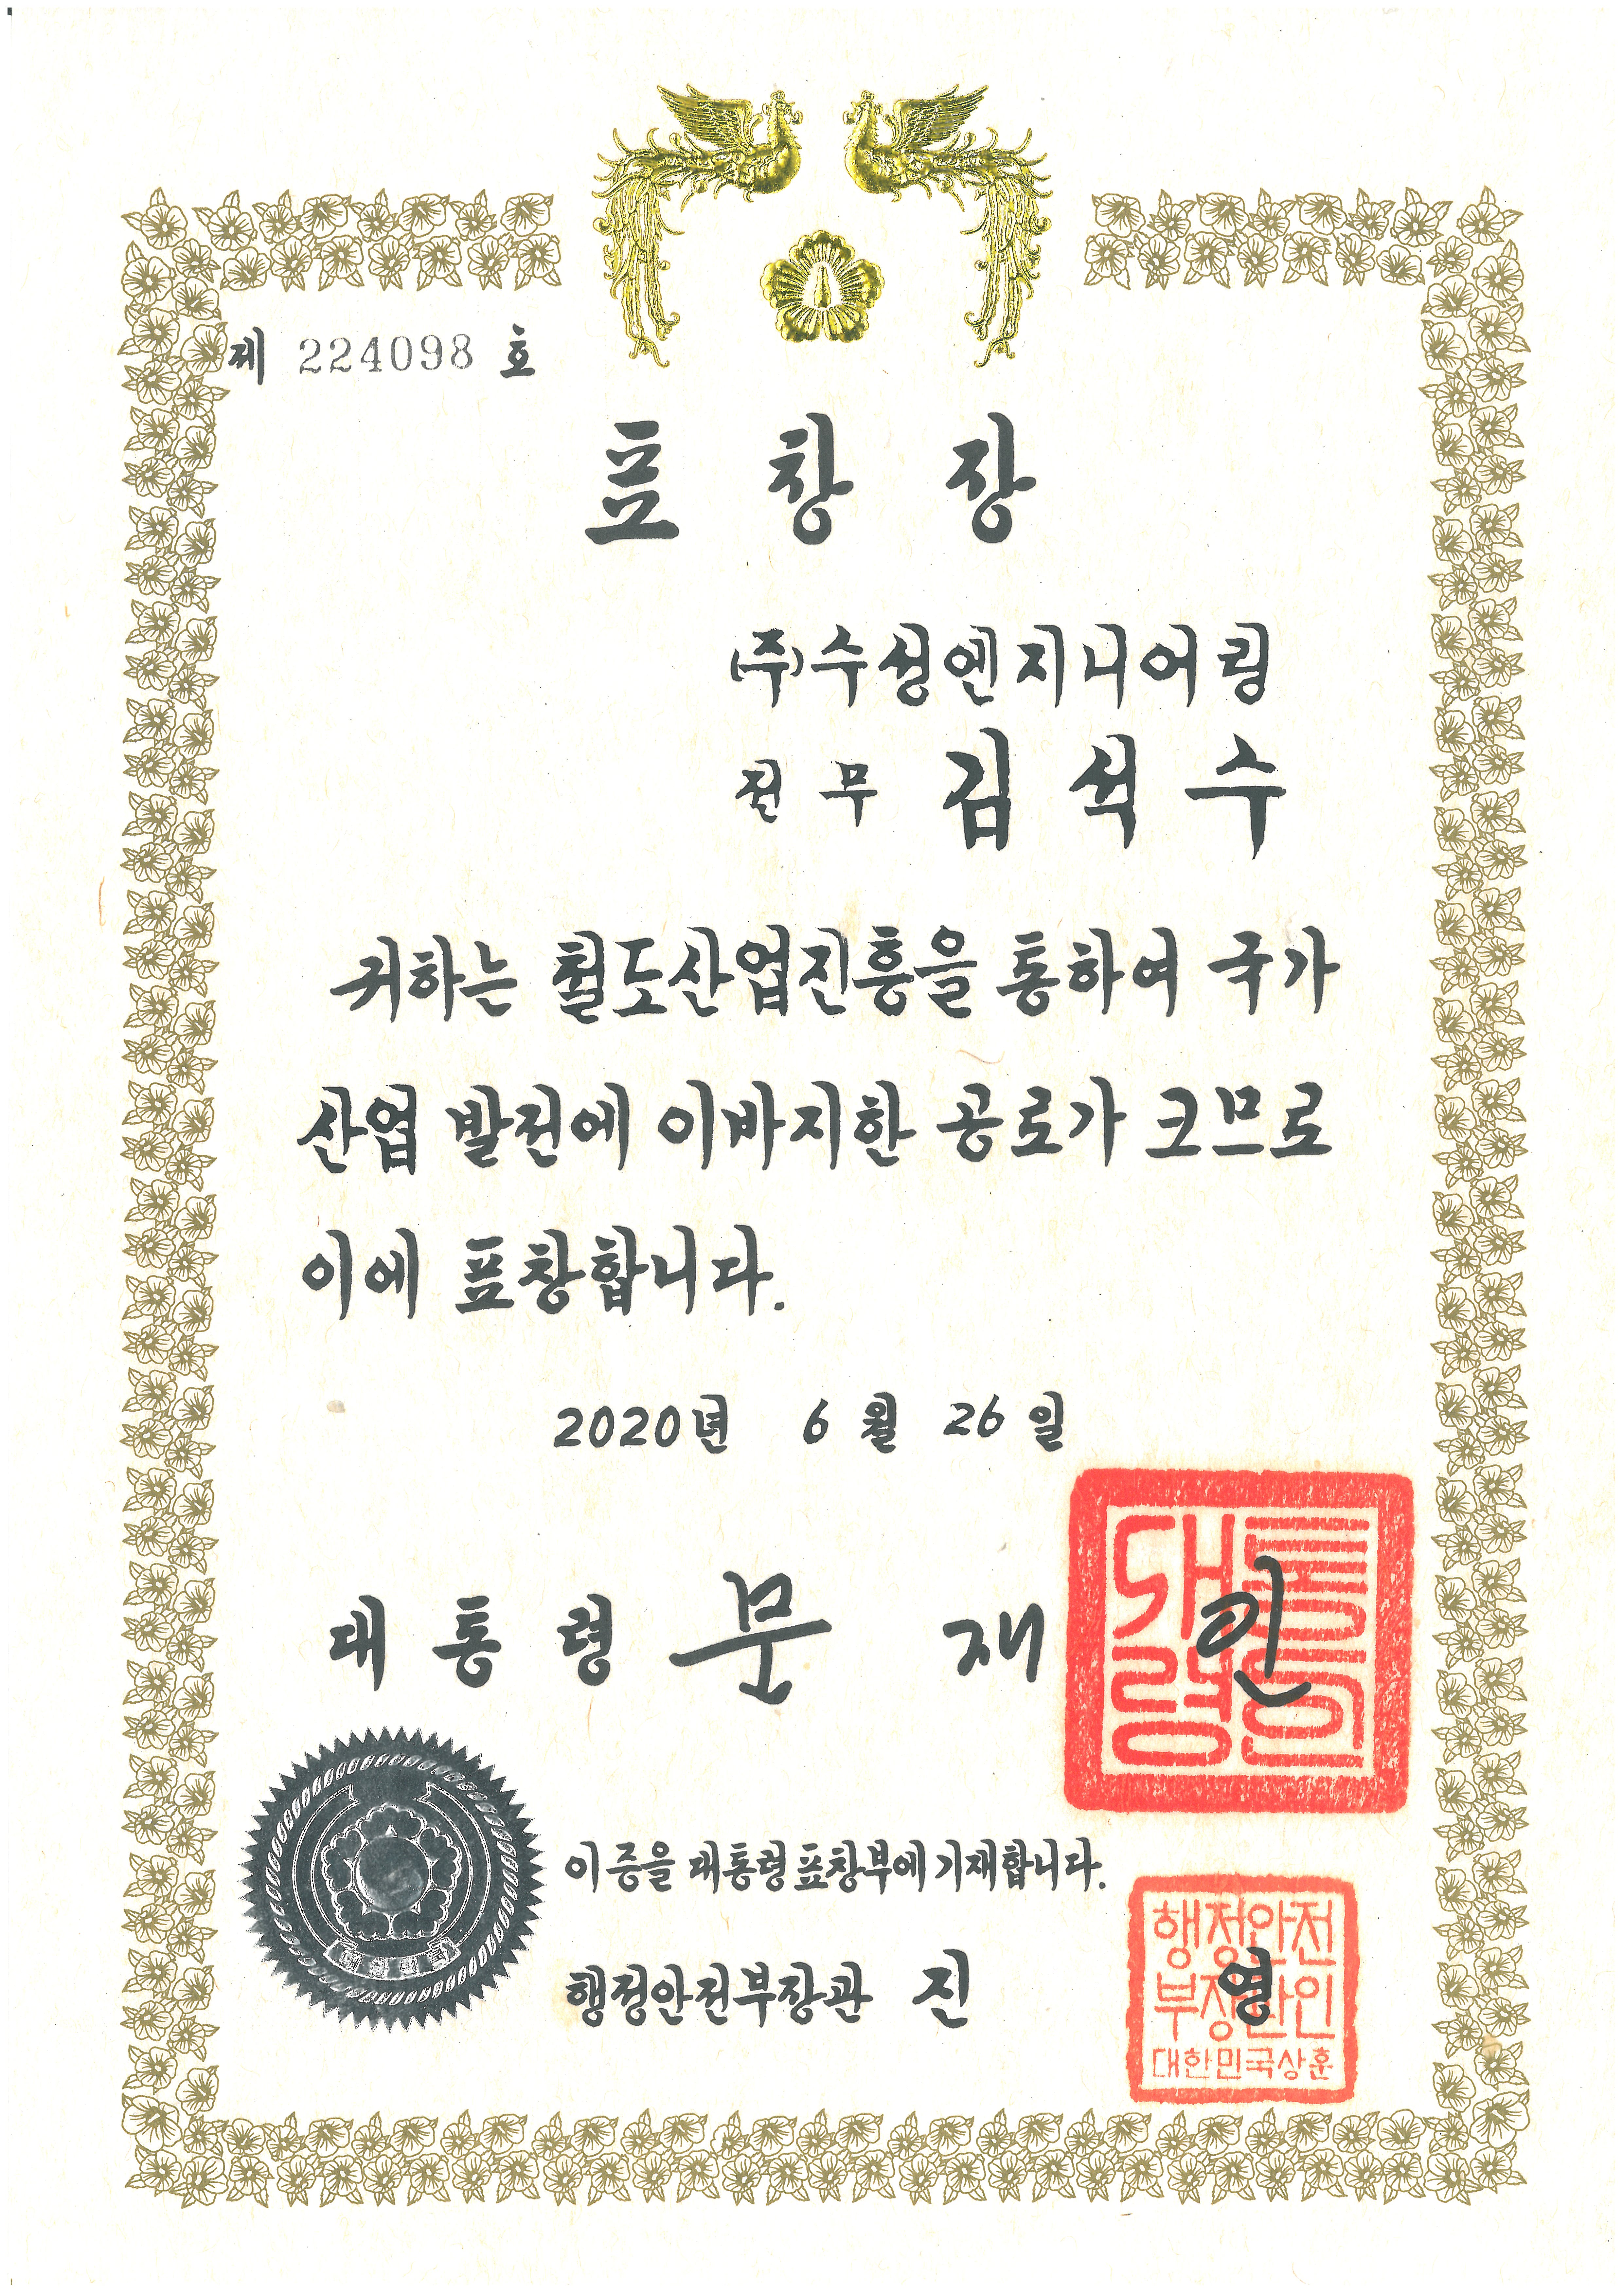 제 224098 호
표 창 장
(주)수성엔지니어링
전 무 김 석 수
귀하는 철도산업진흥을 통하여 국가
산업 발전에 이바지한 공로가 크므로
이에 표창합니다.
2020년 6 월 26 일
대 통 령 문 재 인
대통령인
이 증을 대통령표창부에 기재합니다.
행정안전부장관 진 영
행정안전
부장관인
대한민국상훈
대한민국